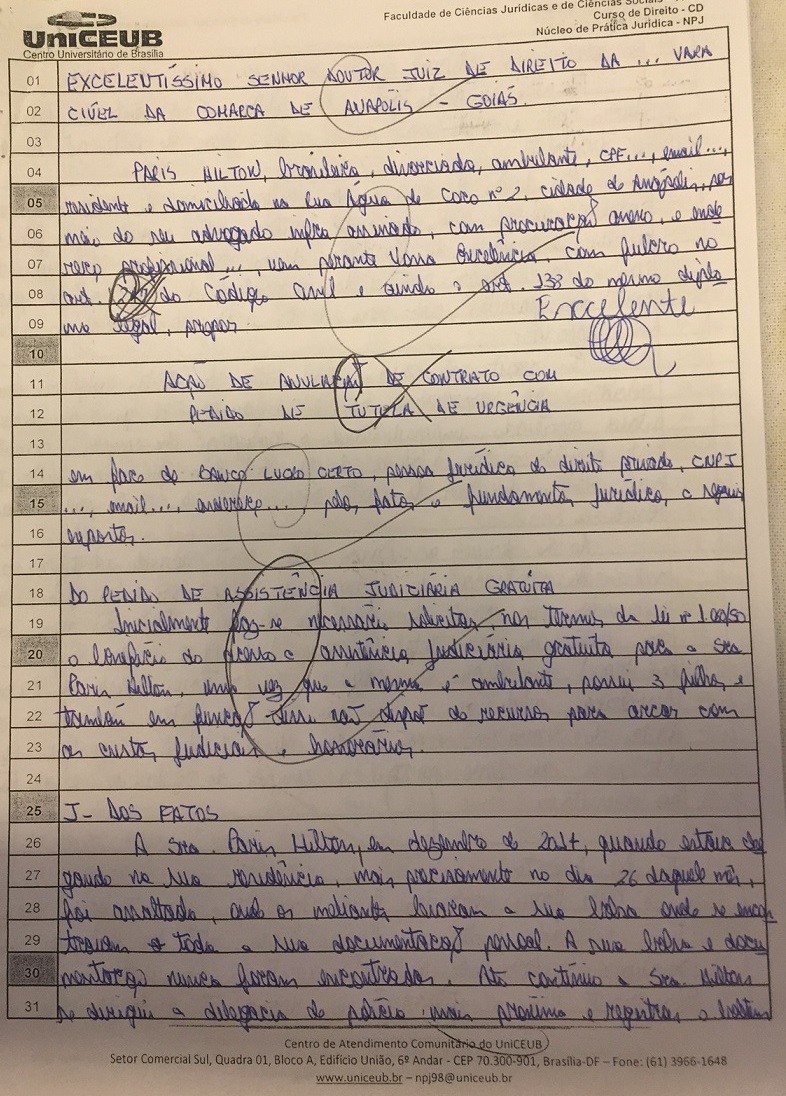 UniCEUB
Centro Universitário de Brasília
Faculdade de Ciências Jurídicas e de Ciências Sociais
Curso de Direito - CD
Núcleo de Prática Jurídica - NPJ
01 EXCELENTÍSSIMO SENHOR DOUTOR JUIZ DE DIREITO DA ... VARA
02 CIVEL DA COMARCA DE ANAPOLIS - GOIÁS
03
04 PARIS HILTON, brasileira, divorciada, ambulante, CPF..., email...,
05 residente e domiciliada na Rua Água de Coco nº 2, cidade de Anapolis, por
06 meio do seu advogado infra assinado, com procuração anexo, e ende
07 reço profissional ..., vem perante Vossa Excelência, com fulcro no
08 art. do Código Civil e ainda o art. 138 do mesmo diplo
Excelente
09 ma legal, propor
10
11 AÇÃO DE ANULAÇÃO DE CONTRATO COM
12 PEDIDO DE TUTULA DE URGÊNCIA
13
14 em face do BANCO LUCRO CERTO, pessoa jurídica de direito privado, CNPJ
15 ..., email..., endereço..., pelos fatos e fundamentos jurídicos a seguir
16 expostos.
17
18 DO PEDIDO DE ASSISTÊNCIA JUDICIÁRIA GRATUITA
19 Inicialmente faz-se necessário solicitar, nos termos da lei nº 1.060/50
20 o benefício do acesso a assistência judiciária gratuita para a Sra
21 Paris Hilton, uma vez que a mesma é ambulante, possui 3 filhos e
22 também em função disso não dispõe de recursos para arcar com
23 as custas judiciais e honorários.
24
25 I - DOS FATOS
26 A Sra. Paris Hilton, em dezembro de 2017, quando estava che
27 gando na sua residência, mais precisamente no dia 26 daquele mês,
28 foi assaltada, onde os meliantes levaram a sua bolsa onde se encon
29 travam toda a sua documentação pessoal. A sua bolsa e docu
30 mentação nunca foram encontrados. Ato contínuo a Sra. Hilton
31 se dirigiu a delegacia de polícia mais próxima e registrou o boletim
Centro de Atendimento Comunitário do UniCEUB
Setor Comercial Sul, Quadra 01, Bloco A, Edifício União, 6º Andar - CEP 70.300-901, Brasília-DF – Fone: (61) 3966-1648
www.uniceub.br – npj98@uniceub.br